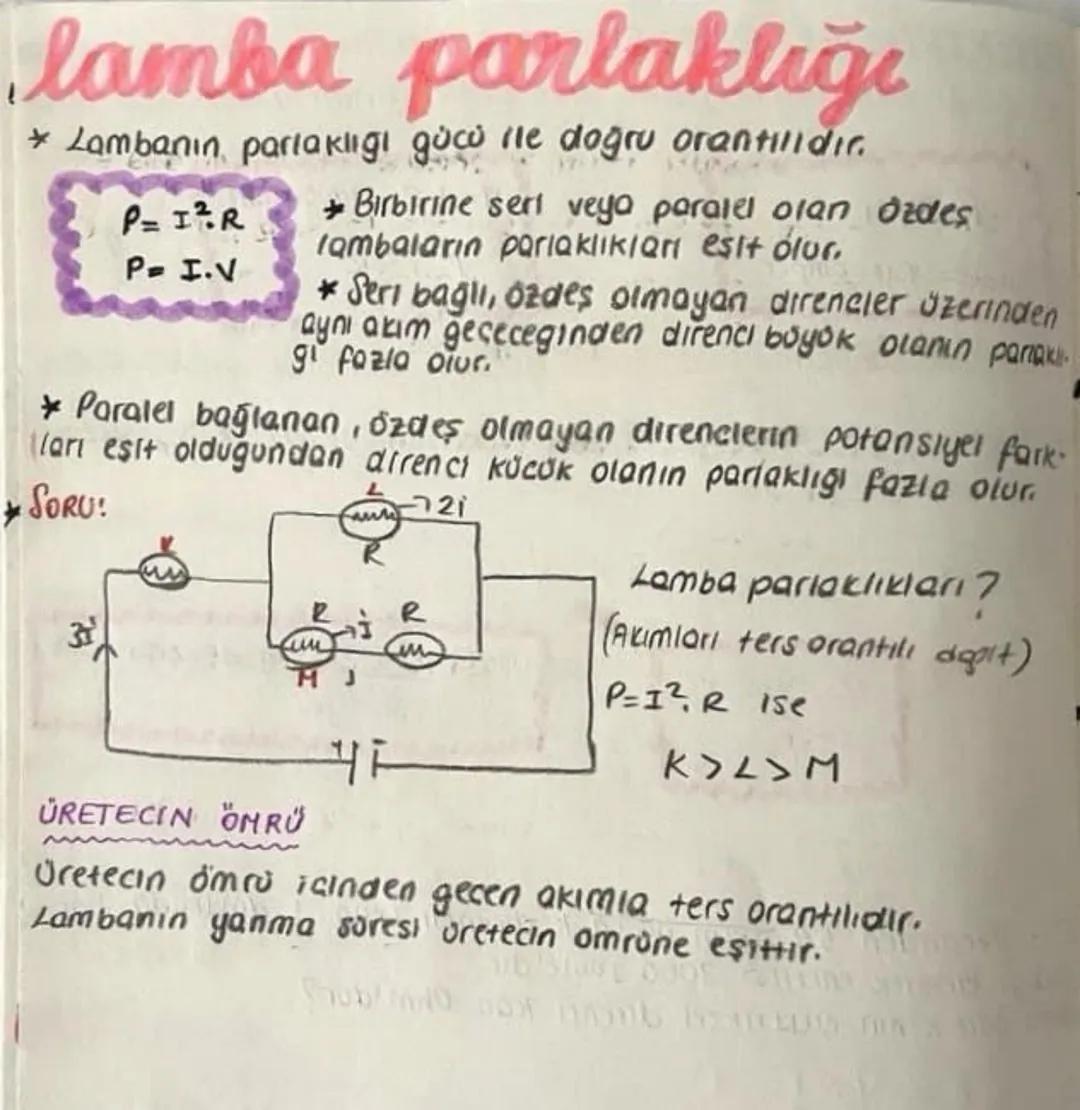 lamba parlaklığı
* Lambanın parlaklığı gücü ile doğru orantılıdır.
P = I². R
P = I.V
* Birbirine seri veya paralel olan özdeş
lambaların parlaklıkları eşit olur.
* Seri bağlı, özdeş olmayan dirençler üzerinden
aynı akım geçeceğinden direnci büyük olanın parlaklı-
ğı fazla olur.
* Paralel bağlanan, özdeş olmayan dirençlerin potansiyel fark-
ları eşit olduğundan direnci küçük olanın parlaklığı fazla olur.
* SORU:
L
2i
R
K
3i
R
i
R
M
+
-
Lamba parlaklıkları?
(Akımları ters orantılı dağıt)
P=I². R ise
K > L > M
ÜRETECİN ÖMRÜ
Üretecin ömrü içinden geçen akımla ters orantılıdır.
Lambanın yanma süresi üretecin ömrüne eşittir.